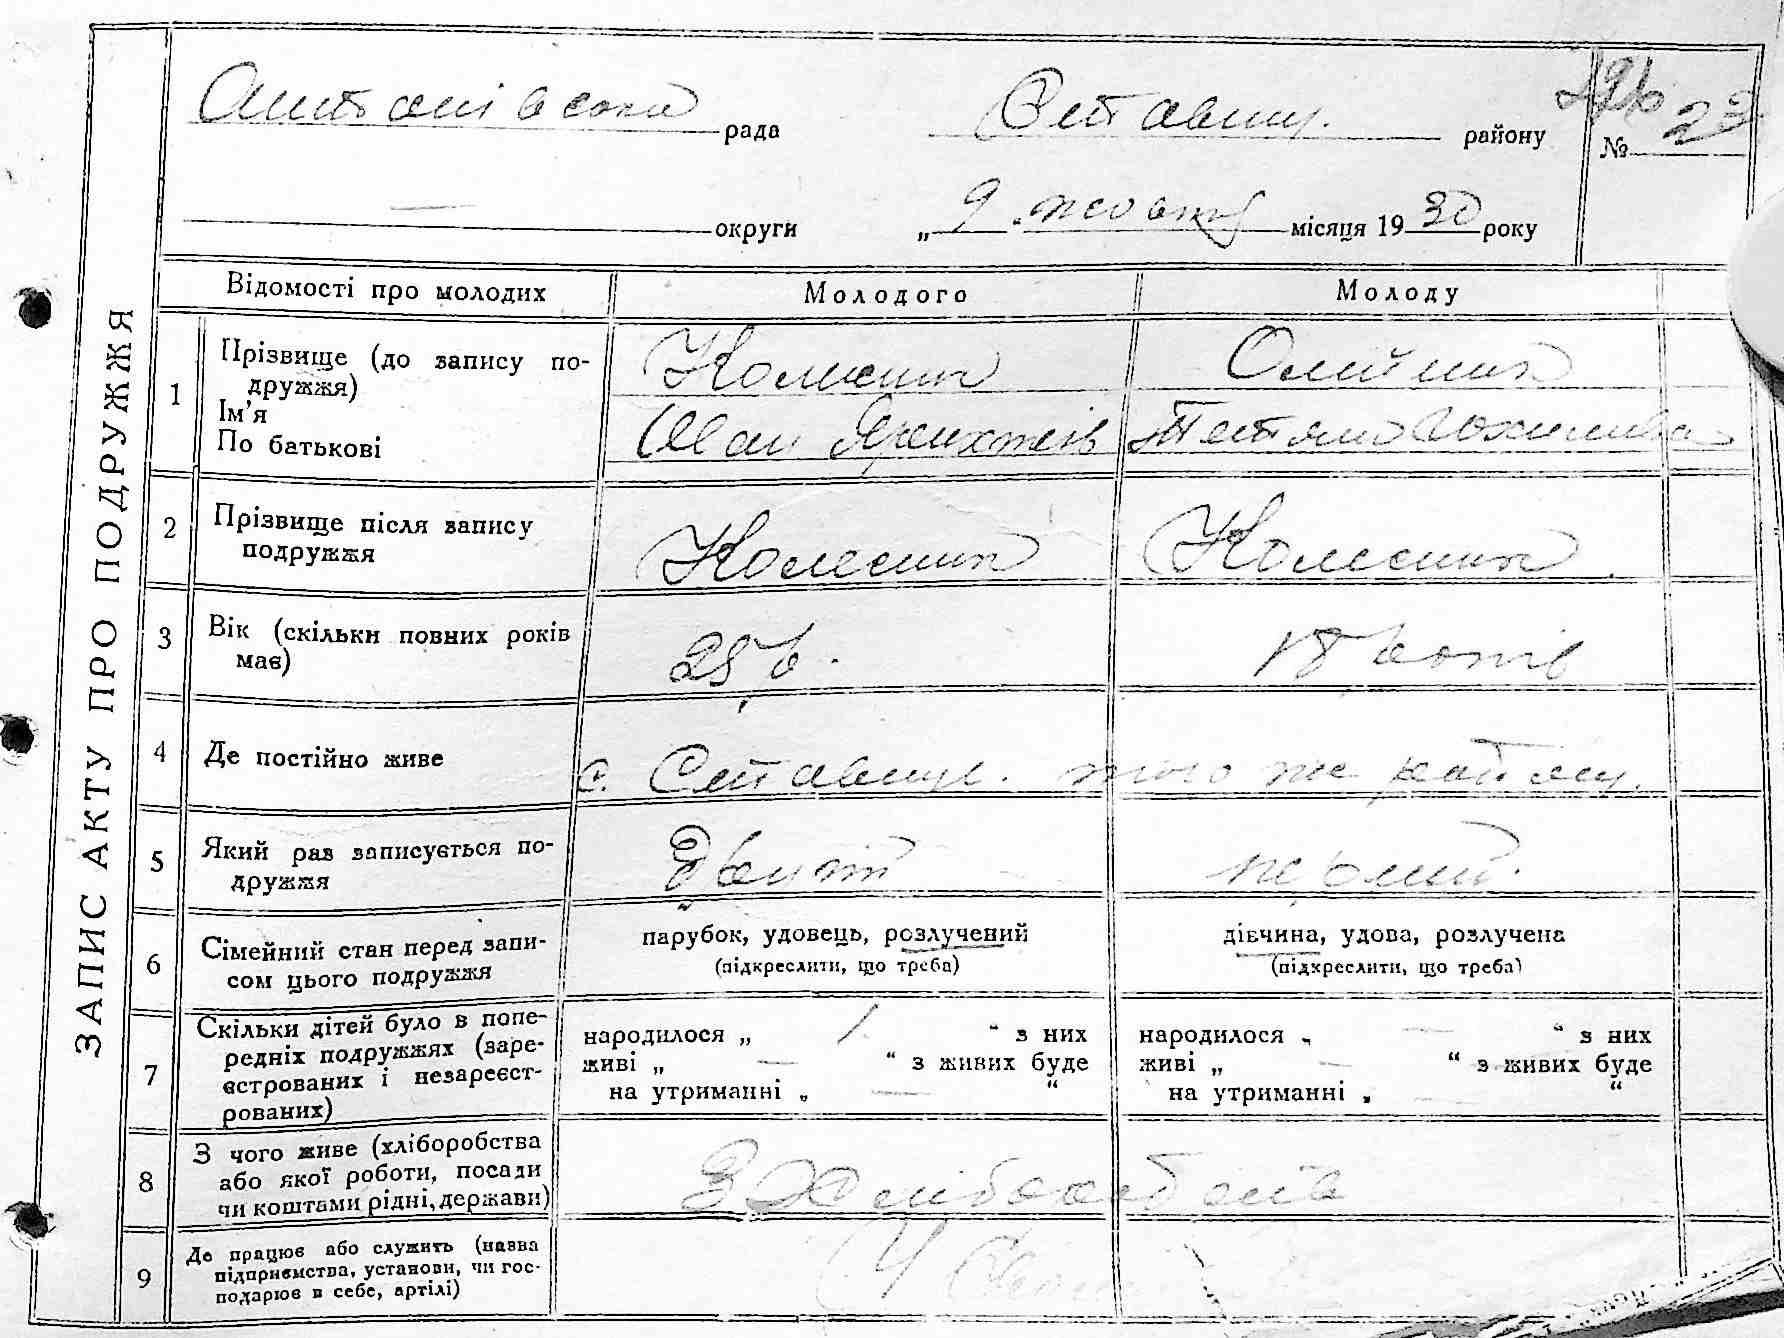 Антонівська рада Ставищ. району № 23
— округи „ 9 “ жовтня місяця 19 30 року
ЗАПИС АКТУ ПРО ПОДРУЖЖЯ
Відомості про молодих Молодого Молоду
1 Прізвище (до запису по-
дружжя)
Ім’я
По батькові
Колесник
Іван
Олійник
Тетяна
2 Прізвище після запису
подружжя
Колесник Колесник.
3 Вік (скільки повних років
має)
25 р. 18 років
4 Де постійно живе
с. Ставище. того же району.
5 Який раз записується по-
дружжя
другий перший.
6 Сімейний стан перед запи-
сом цього подружжя
парубок, удовець, розлучений
(підкреслити, що треба)
дівчина, удова, розлучена
(підкреслити, що треба)
7 Скільки дітей було в попе-
редніх подружжях (заре-
єстрованих і незареєст-
рованих)
народилося „ 1 “ з них
живі „ — “ з живих буде
на утриманні „ — “
народилося „ — “ з них
живі „ — “ з живих буде
на утриманні „ — “
8 З чого живе (хліборобства
або якої роботи, посади
чи коштами рідні, держави)
З
9 Де працює або служить (назва
підприємства, установи, чи гос-
подарює в себе, артілі)
У